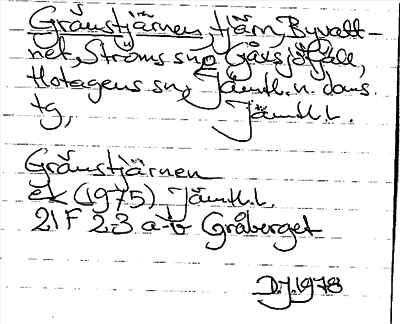 Gränstjärnen, tjärn, Byvatt-
net, Ströms sn o Gåxsjöfäll,
Hotagens sn, Jämtl. n. doms.
tg, Jämtl. l.
Gränstjärnen
ek (1975) Jämtl. l.
21F 23 a-b Gråberget
D.J. 1978